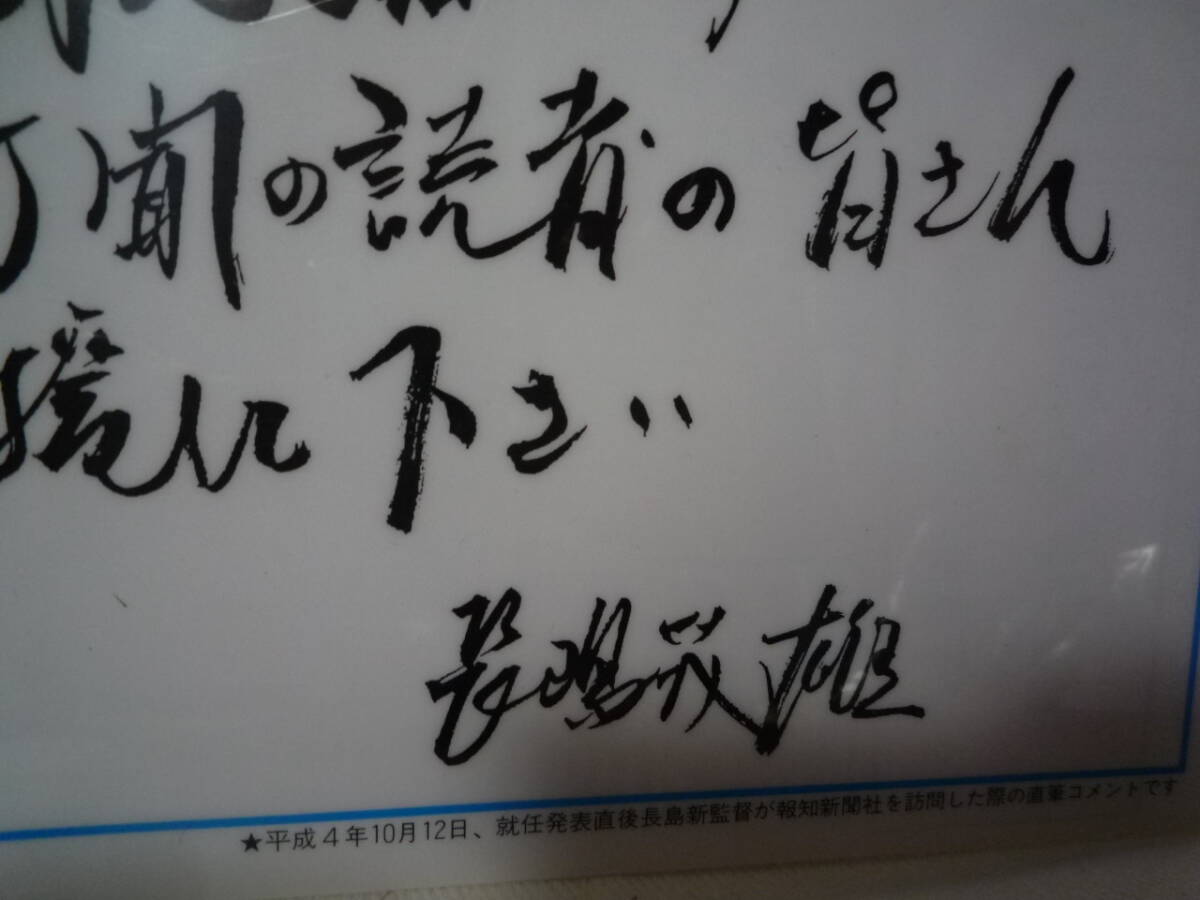 聞の読者の皆さん
援して下さい
長嶋茂雄
★平成4年10月12日、就任発表直後長島新監督が報知新聞社を訪問した際の直筆コメントです